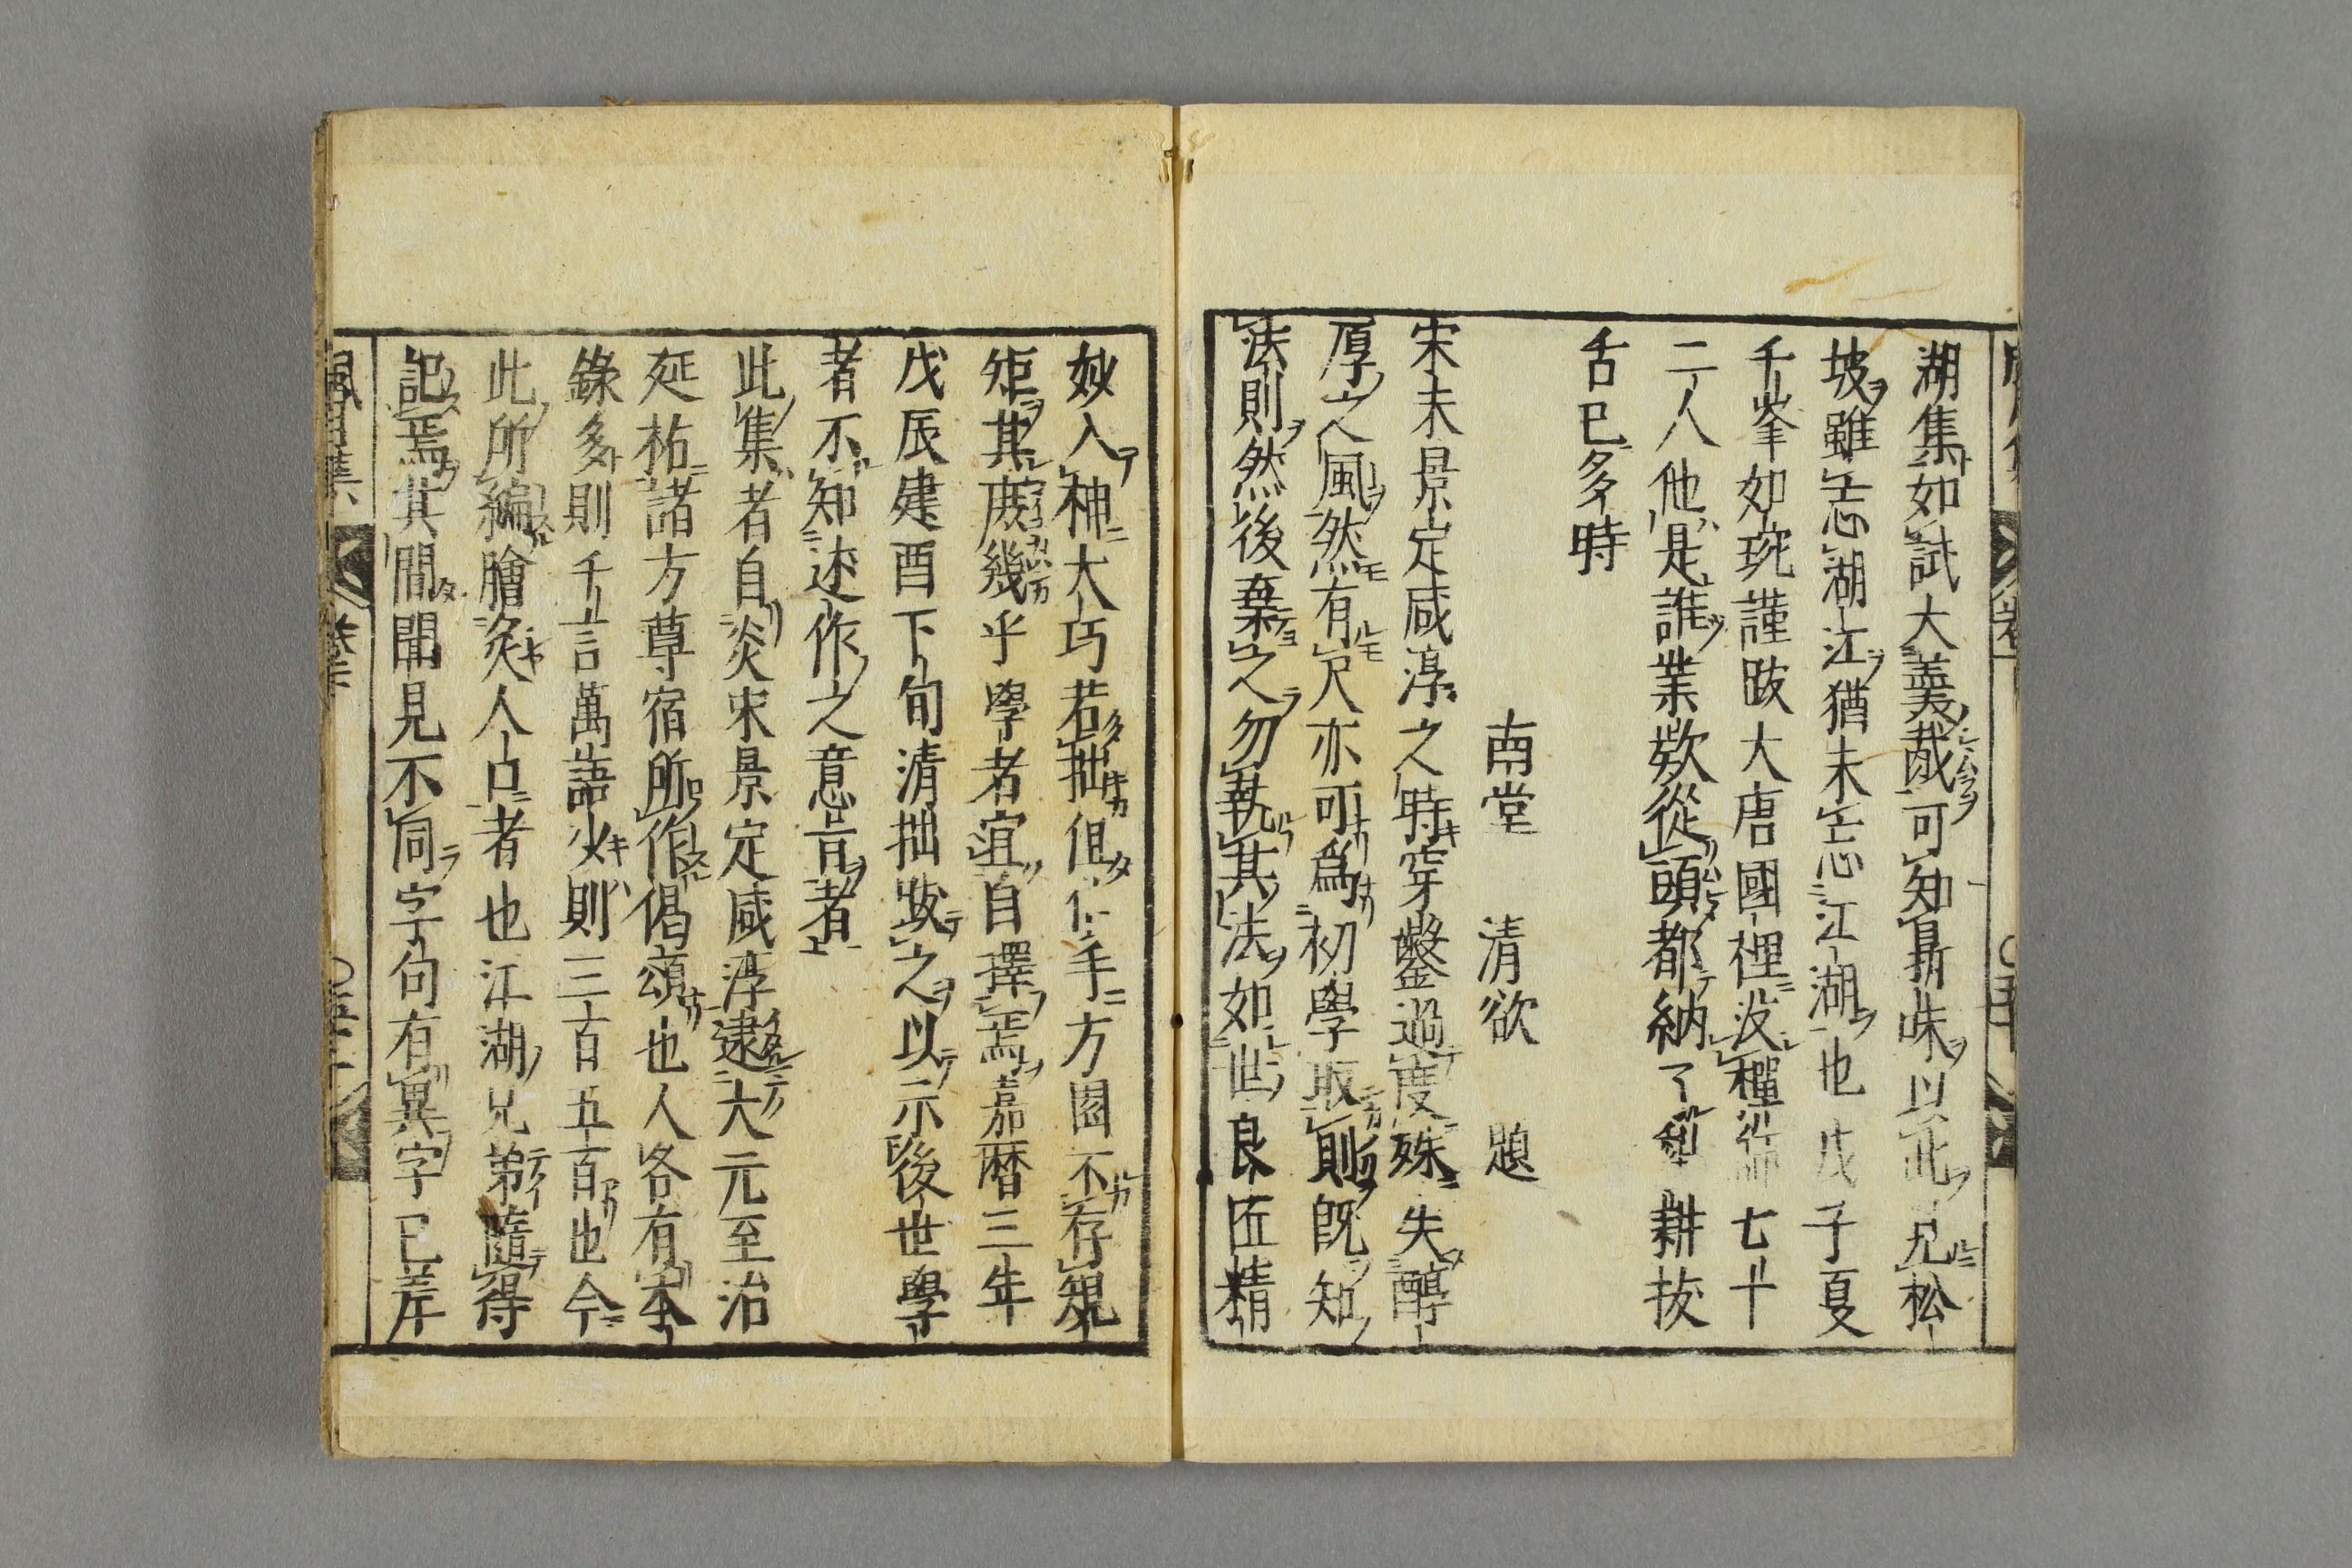 湖集如試大羹胾可知鼎味以此兄松
坡雖忘湖江猶未忘江湖也戊子夏
千峯如琓謹跋大唐國裡没禪師七十
二人他是誰業欵從頭都納了犁耕拔
舌已多時
南堂清欲題
宋末景定咸淳之時穿鑿過度殊失醇
厚之風然有尺亦可爲初學取則既知
法則然後棄之勿執其法如世良匠精
妙入神大巧若拙但信手方圓不存規
矩其庶幾乎學者宜自擇焉嘉曆三年
戊辰建酉下旬清拙跋之以示後世學
者不知述作之意旨者
此集者自炎宋景定咸淳逮大元至治
延祐諸方尊宿所作偈頌也人各有本
錄多則千言萬語少則三百五百也今
此所編膾炙人口者也江湖兄弟隨得
記焉其間聞見不同字句有異字已差